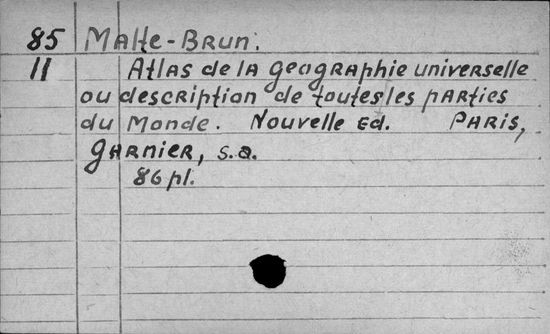 85 Malte-Brun.
11 Atlas de la geographie universelle
ou description de toutes les parties
du Monde. Nouvelle Ed. Paris,
Garnier, s.a.
86 pl.